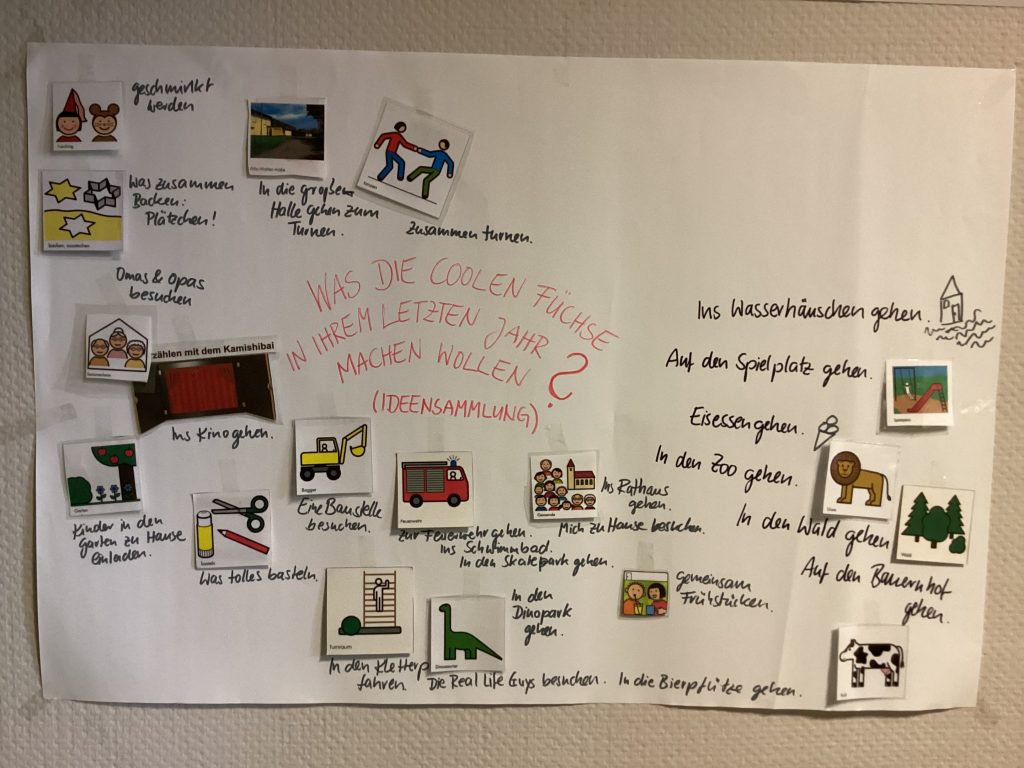 geschminkt
werden
Fasching
Was zusammen
Backen:
Plätzchen!
backen, ausstechen
In die großen
Halle gehen zum
Turnen.
turnen
Zusammen turnen.
Omas & Opas
besuchen
zählen mit dem Kamishibai
Ins Kino gehen.
WAS DIE COOLEN FÜCHSE
IN IHREM LETZTEN JAHR
MACHEN WOLLEN ?
(IDEENSAMMLUNG)
Ins Wasserhäuschen gehen.
Auf den Spielplatz gehen.
Eisessen gehen.
In den Zoo gehen.
Löwe
In den Wald gehen
Wald
Auf den Bauernhof
gehen.
Kuh
Garten
Kinder in den
Garten zu Hause
einladen.
basteln
Was tolles basteln.
Bagger
Eine Baustelle
besuchen.
Feuerwehr
Zur Feuerwehr gehen.
Ins Schwimmbad.
In den Skatepark gehen.
Gemeinde
Ins Rathaus
gehen.
Mich zu Hause besuchen.
Turnraum
In den Kletterp
fahren
Dinosaurier
In den
Dinopark
gehen.
gemeinsam
Frühstücken.
Die Real Life Guys besuchen.
In die Bierpfütze gehen.